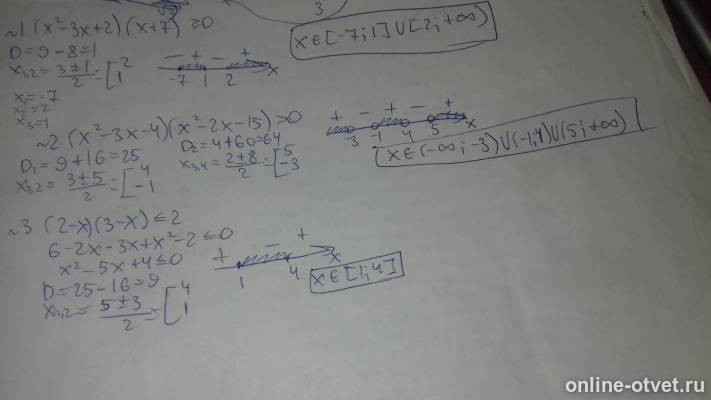 3
~1 (x²-3x+2)(x+7) ≥0
D=9-8=1
x₁,₂=(3±1)/2=[2 1
x₁=-7
x₂=2
x₃=1
- + - +
-7 1 2 x
x∈[-7;1]∪[2;+∞)
~2 (x²-3x-4)(x²-2x-15)>0
D₁=9+16=25
x₁,₂=(3±5)/2=[4 -1
D₂=4+60=64
x₃,₄=(2±8)/2=[5 -3
+ - + - +
-3 -1 4 5 x
x∈(-∞;-3)∪(-1;4)∪(5;+∞)
~3 (2-x)(3-x)≤2
6-2x-3x+x²-2≤0
x²-5x+4≤0
D=25-16=9
x₁,₂=(5±3)/2=[4 1
+ - +
1 4 x
x∈[1;4]
online-otvet.ru